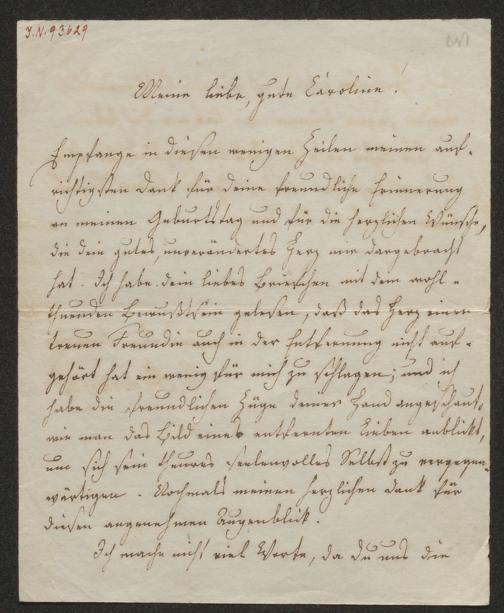 J.N. 93629
Meine liebe, gute Caroline!
Empfange in diesen wenigen Zeilen meinen auf-
richtigsten Dank für deine freundliche Erinnerung
an meinen Geburtstag und für die herzlichen Wünsche,
die dein gutes, unverändertes Herz mir dargebracht
hat. Ich habe dein liebes Briefchen mit dem wohl-
thuenden Bewußtsein gelesen, daß das Herz einer
treuen Freundin auch in der Entfernung nicht auf-
gehört hat ein wenig für mich zu schlagen; und ich
habe die freundlichen Züge deiner Hand angeschaut,
wie man das Bild eines entfernten Lieben anblickt,
um sich sein theures seelenvolles Selbst zu vergegen-
wärtigen. Nochmals meinen herzlichen Dank für
diesen angenehmen Augenblick.
Ich mache nicht viel Worte, da du uns die